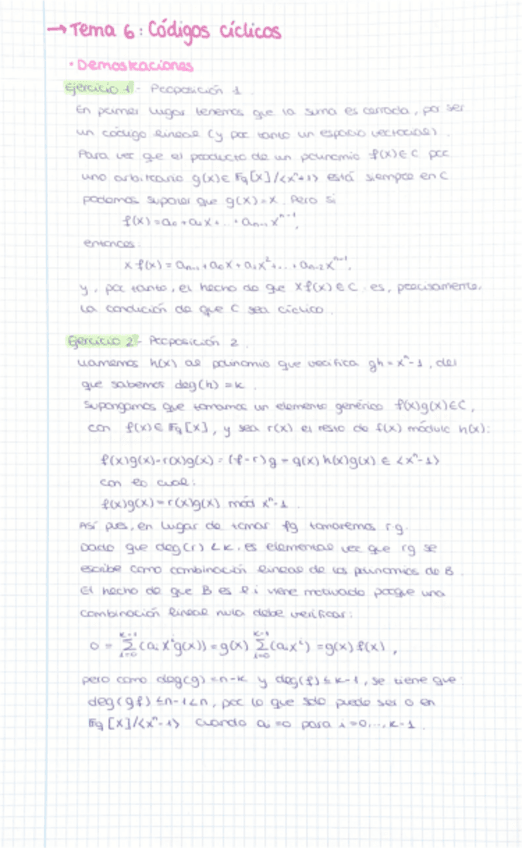 → Tema 6: Códigos cíclicos
• Demostraciones
Ejercicio 1 - Proposición 1.
En primer lugar tenemos que la suma es cerrada, por ser
un código lineal (y por tanto un espacio vectorial).
Para ver que el producto de un polinomio f(x)∈C por
uno arbitrario g(x)∈ 𝔽q[x]/<xⁿ-1> está siempre en C
podemos suponer que g(x)=x. Pero si
f(x)=a₀+a₁x+...+aₙ₋₁xⁿ⁻¹,
entonces
xf(x)=aₙ₋₁+a₀x+a₁x²+...+aₙ₋₂xⁿ⁻¹,
y, por tanto, el hecho de que xf(x)∈C es, precisamente,
la condición de que C sea cíclico.
Ejercicio 2 - Proposición 2
Llamemos h(x) al polinomio que verifica gh=xⁿ-1, del
que sabemos deg(h)=k.
Supongamos que tomamos un elemento genérico f(x)g(x)∈C,
con f(x)∈ 𝔽q[x], y sea r(x) el resto de f(x) módulo h(x):
f(x)g(x)-r(x)g(x)=(f-r)g=q(x)h(x)g(x) ∈ <xⁿ-1>
con lo cual:
f(x)g(x)=r(x)g(x) mód xⁿ-1
Así pues, en lugar de tomar fg tomaremos rg.
Dado que deg(r)<k, es elemental ver que rg se
escribe como combinación lineal de los polinomios de B.
El hecho de que B es l.i viene motivado porque una
combinación lineal nula debe verificar:
0 = Σᵢ₌₀ᵏ⁻¹ (aᵢxⁱg(x)) = g(x) Σᵢ₌₀ᵏ⁻¹ (aᵢxⁱ) = g(x)f(x),
pero como deg(g)=n-k y deg(f)≤k-1, se tiene que
deg(gf)≤n-1<n, por lo que solo puede ser 0 en
𝔽q[x]/<xⁿ-1> cuando aᵢ=0 para i=0,...,k-1.